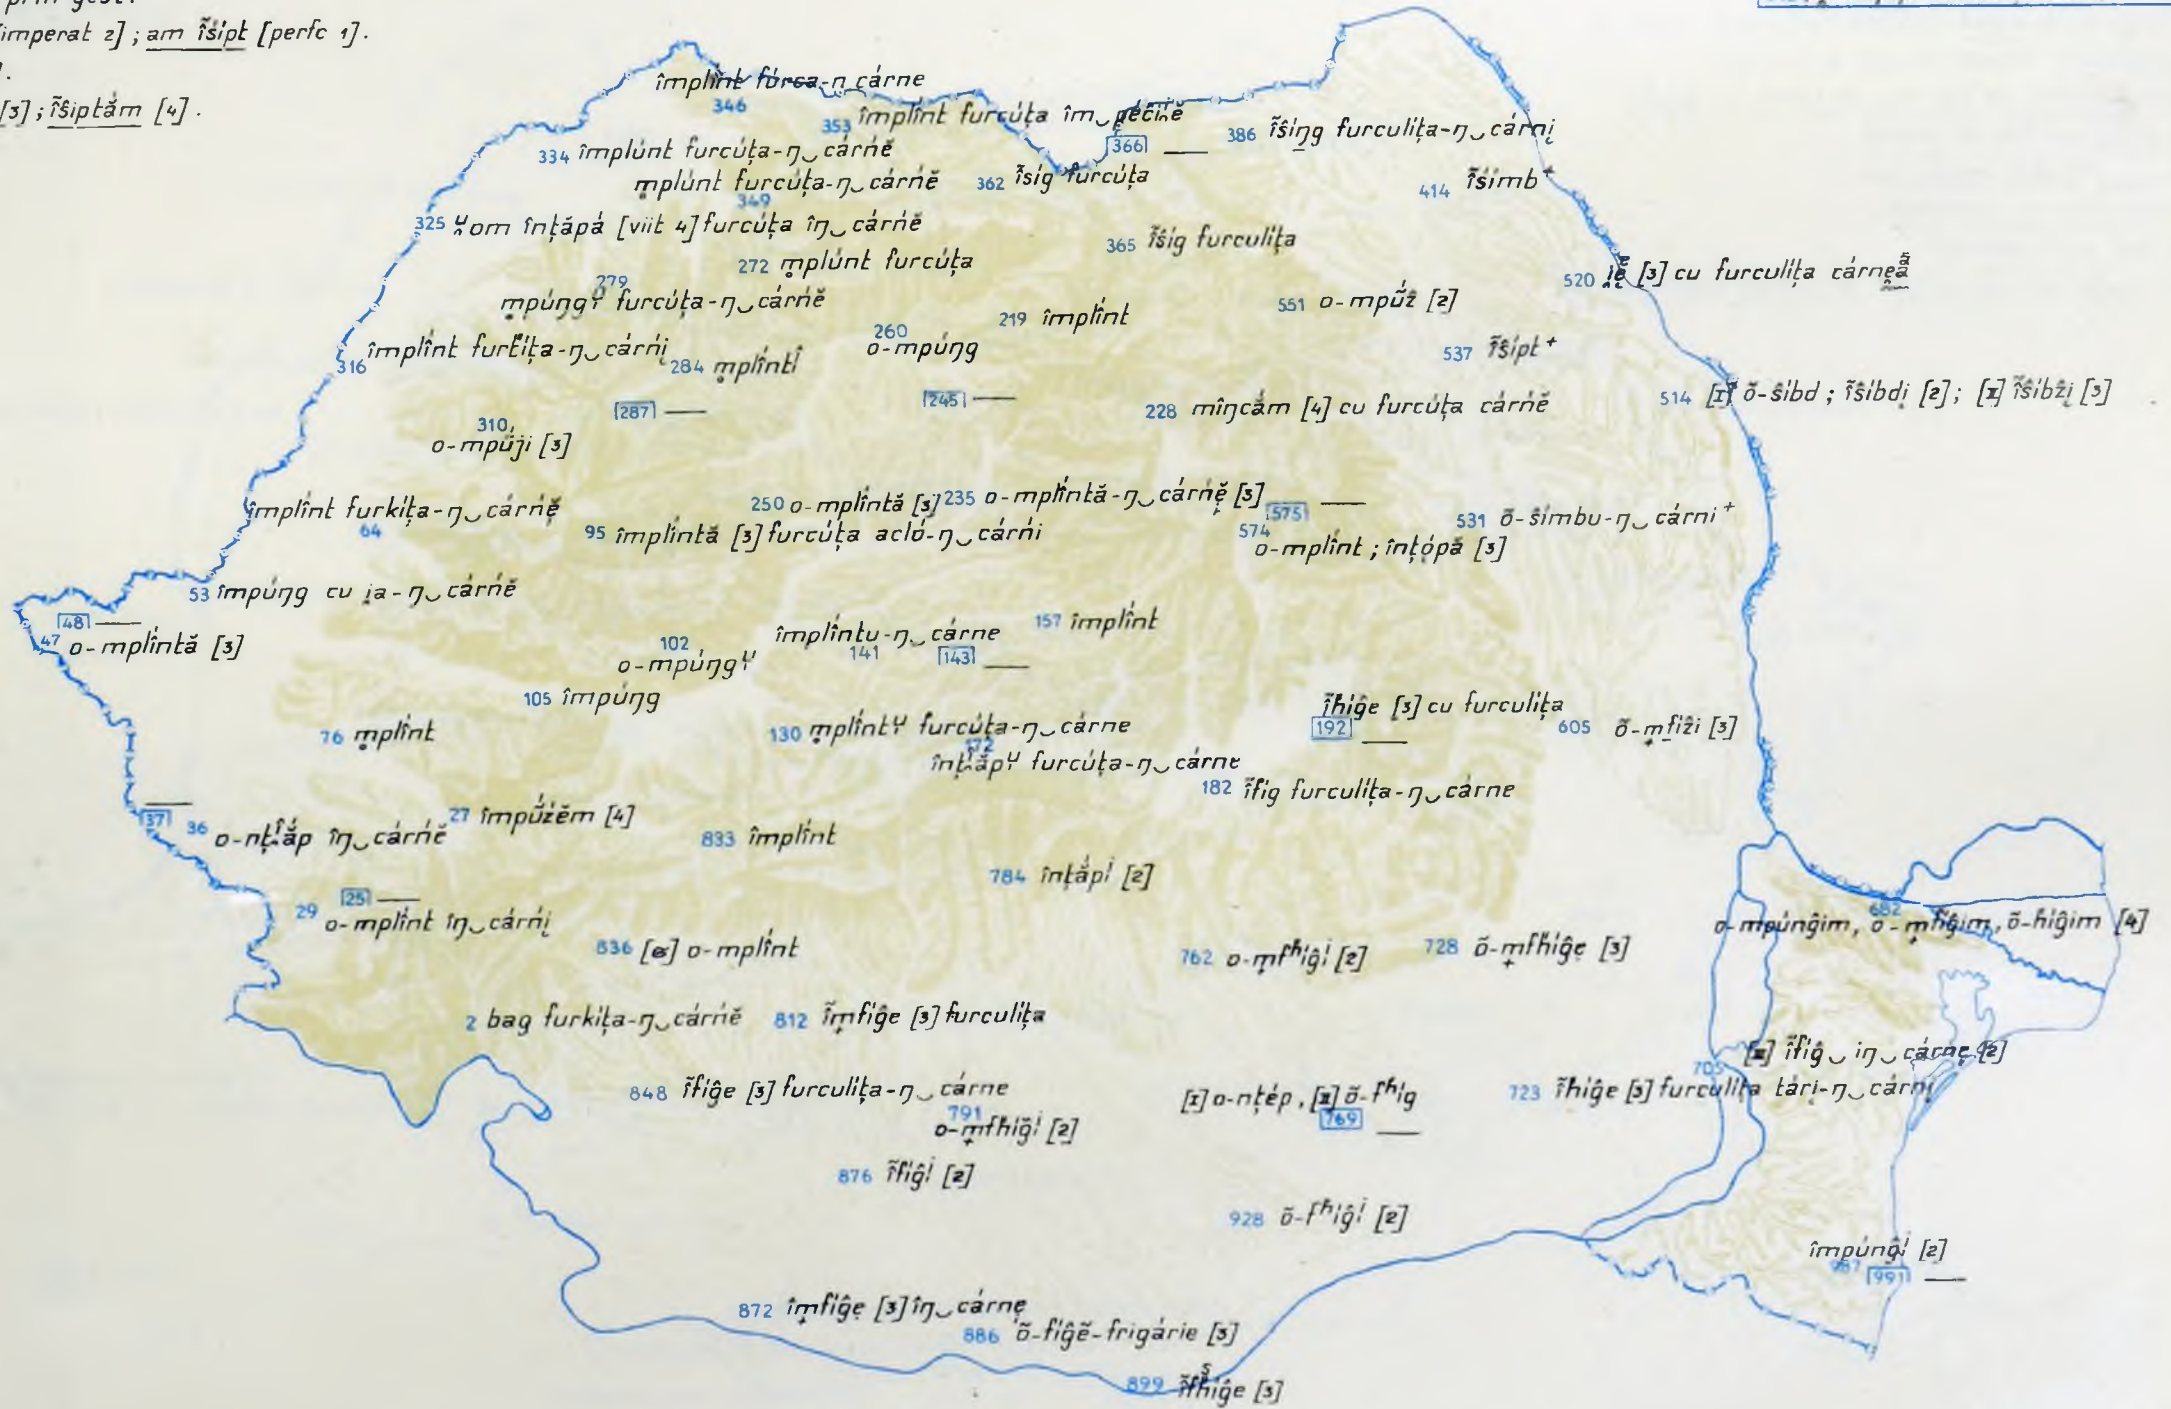 [imperat 2] ; am ĩŝípt [perfc 1].
[3] ; ĩŝiptắm [4].
împlî́nt fúrca-n cárne
346
353 împlî́nt furcúța îm‿péĉińĕ
366 —
386 ĩŝíŋg furculíța-ŋ‿cárnį
334 împlúnt furcúța-ŋ‿cárńĕ
m̥plúnt furcúța-ŋ‿cárńĕ
349
362 ĩsíg furcúța
414 ĩŝímb⁺
325 om înțăpá [viit 4] furcúța îŋ‿cárńĕ
365 ĩŝíg furculíța
272 m̥plúnt furcúța
520 [3] cu furculíța
279
m̥púŋgᵘ furcúța-ŋ‿cárńĕ
551 o-mpṹẑ [2]
219 împlî́nt
260
o-mpúŋg
316 împlî́nt furt́íța-ŋ‿cárńį
284 m̥plî́ntî
537 ĩŝípt⁺
287 —
245 —
228 mîŋcắm [4] cu furcúța cárńĕ
514 [I] õ-ŝíbd ; ĩŝíbdį [2] ; [II] ĩŝíbẑį [3]
310
o-mpṹji [3]
împlî́nt furkíța-ŋ‿cárńĕ
64
250 o-mplî́ntă [3]
235 o-mplî́ntă-ŋ‿cárńĕ [3]
575 —
531 õ-ŝímbu-ŋ‿cárni⁺
95 împlî́ntă [3] furcúța acló-ŋ‿cárńi
574
o-mplî́nt ; înțópă [3]
53 împúŋg cu įa-ŋ‿cárńĕ
48 —
47 o-mplî́ntă [3]
102
o-mpúŋgᵘ
împlî́ntu-ŋ‿cárne
141
143 —
157 împlî́nt
105 împúŋg
76 m̥plî́nt
130 m̥plî́ntᵘ furcúța-ŋ‿cárne
172
furcúța-ŋ‿cárne
ĩh́íĝe [3] cu furculíța
192 —
605 õ-mfíẑi [3]
182 ĩfíg furculíța-ŋ‿cárne
37 —
36 îŋ‿cárńĕ
27 împṹźĕm [4]
833 împlî́nt
784 înțắpⁱ [2]
25 —
29 o-mplî́nt îŋ‿cárńį
836 o-mplî́nt
762 o-mfʰíĝⁱ [2]
728 õ-mfh́íĝe [3]
682
o-mpúnĝim, o-mfíĝim, õ-h́íĝim [4]
2 bag furkíța-ŋ‿cárńĕ
812 ĩmfíĝe [3] furculíța
705
[II] ĩfíĝ‿iŋ‿cárne [2]
848 ĩfíĝe [3] furculíța-ŋ‿cárne
791
o-mfh́íĝⁱ [2]
[I] o-nțép, [II] õ-fʰíg
769 —
723 ĩh́íĝe [3] furculíța tári-ŋ‿cárnį
876 ĩfíĝⁱ [2]
928 õ-fʰíĝⁱ [2]
împúnĝⁱ [2]
987
991 —
872 îmfíĝe [3] îŋ‿cárne
886 õ-fíĝĕ-frigárie [3]
899 [3]